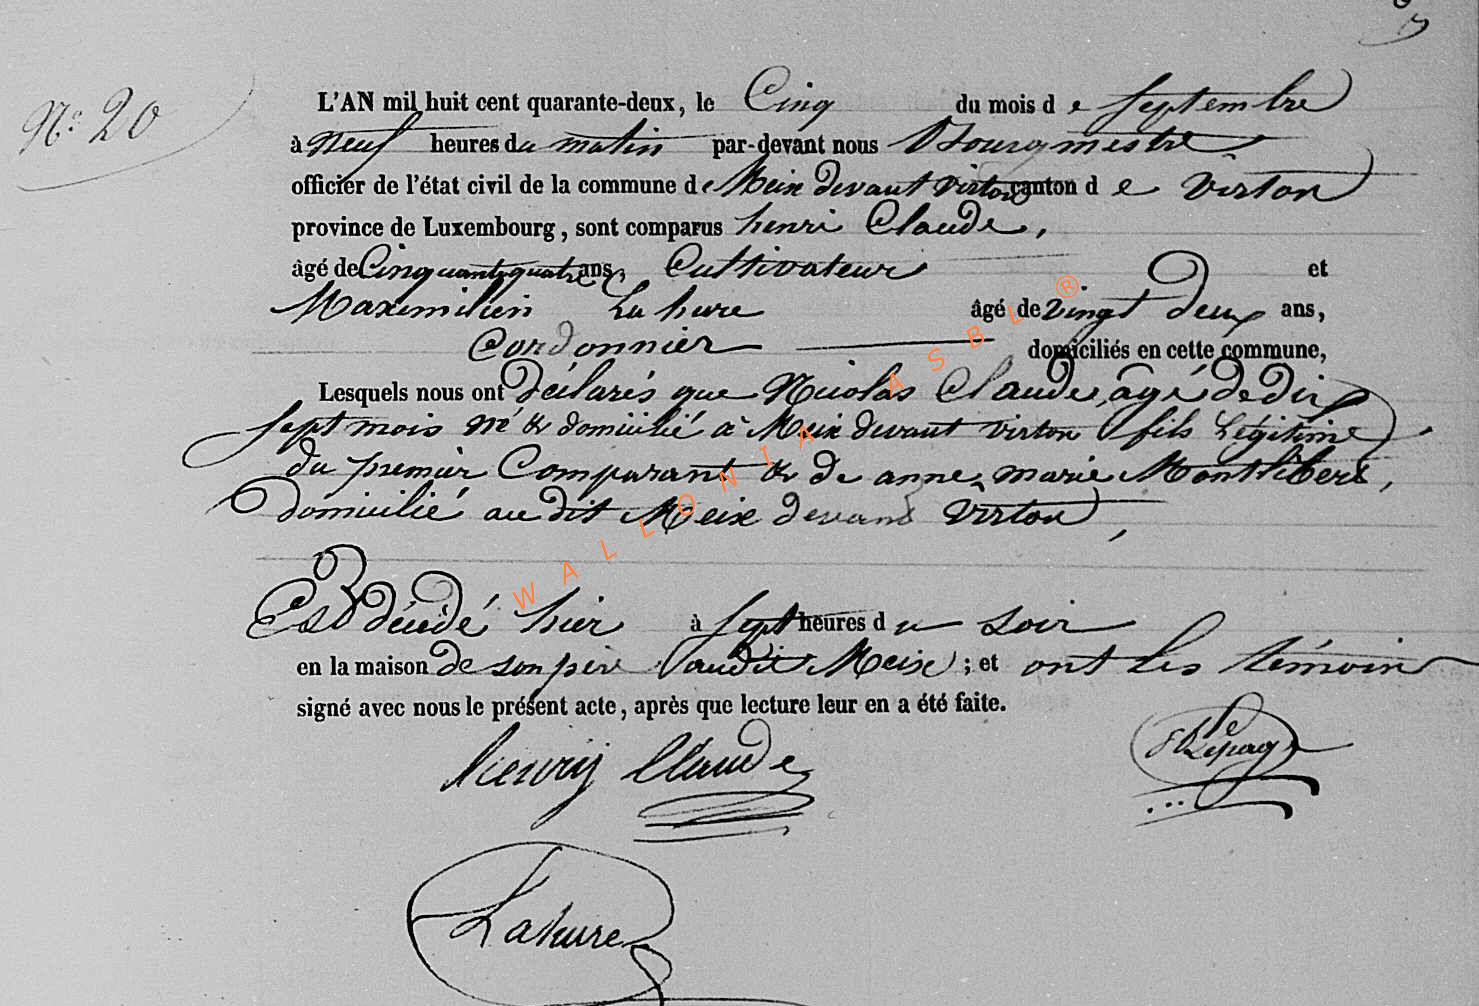 No. 20
L'AN mil huit cent quarante-deux, le Cinq du mois d e Septembre
à Neuf heures du matin par-devant nous Bourgmestre
officier de l'état civil de la commune de Meix devant virton canton d e Virton
province de Luxembourg, sont comparus henri Claude,
âgé de Cinquante quatre ans, Cultivateur et
Maximilien Lahure âgé de vingt deux ans,
Cordonnier domiciliés en cette commune,
Lesquels nous ont déclarés que Nicolas Claude, âgé de dix
sept mois né & domicilié à Meix devant virton fils Légitime
du premier Comparant & de anne, marie Montlibert,
domicilié au dit Meix devant Virton,
Est décédé hier à sept heures d u soir
en la maison de son père audit Meix ; et ont les témoins
signé avec nous le présent acte, après que lecture leur en a été faite.
henry Claude
Lepage
Lahure
WALLONIA ASBL ®